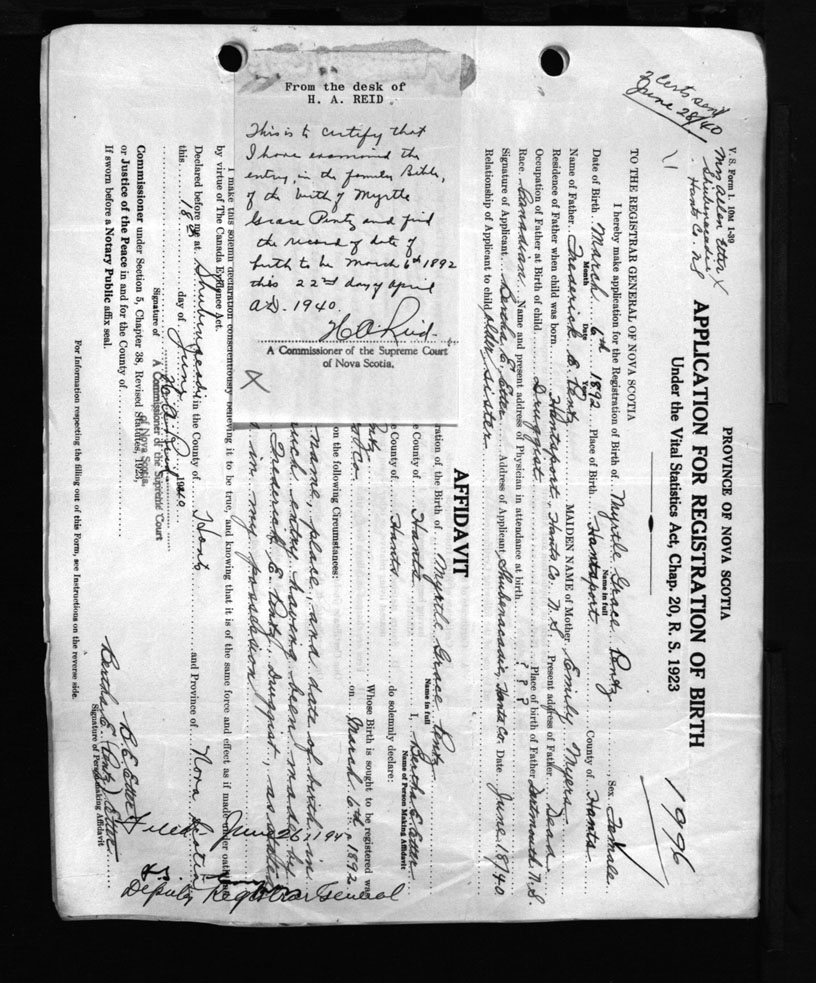 From the desk of
H. A. REID
This is to certify that
I have examined the
entry, in the family Bible,
of the birth of Myrtle
Grace Pentz and find
the record of date of
birth to be March 6th 1892
this 22nd day of April
A.D. 1940.
H A Reid
A Commissioner of the Supreme Court
of Nova Scotia.
2 Certs sent
June 28/40
V. S. Form 1. 10M 1-39
Mrs Allen Etter
Shubenacadie
Hants Co. NS
PROVINCE OF NOVA SCOTIA
APPLICATION FOR REGISTRATION OF BIRTH
Under the Vital Statistics Act, Chap. 20, R. S. 1923
1996
TO THE REGISTRAR GENERAL OF NOVA SCOTIA
I hereby make application for the Registration of Birth of Myrtle Grace Pentz Sex Female
Name in full
Date of Birth March 6th 1892 Place of Birth Hantsport County of Hants
Month Date Year
Name of Father Frederick E. Pentz MAIDEN NAME of Mother Emily Myers
Residence of Father when child was born Hantsport, Hants Co. N.S. Present address of Father Dead
Occupation of Father at Birth of child Druggist Place of birth of Father Dartmouth N.S.
Race Canadian Name and present address of Physician in attendance at birth ? ? ?
Signature of Applicant Bertha E. Etter Address of Applicant Shubenacadie, Hants Co. Date June 18/40
Relationship of Applicant to child Elder Sister
AFFIDAVIT
ration of the Birth of Myrtle Grace Pentz
Name in full
e County of Hants I, Bertha E. Etter
Name of Person Making Affidavit
e County of Hants do solemnly declare:
Whose Birth is sought to be registered was
on March 6th 1892
on the following Circumstances:
name, place and date of birth in
such entry having been made by
Frederick E. Pentz, Druggist, as stated
in my possession
I make this solemn declaration conscientiously believing it to be true, and knowing that it is of the same force and effect as if made under oath
by virtue of The Canada Evidence Act.
Declared before me at Shubenacadie in the County of Hants and Province of Nova Scotia
this 18th day of June 1940
H. A. Reid
Signature of
A Commissioner of the Supreme Court
of Nova Scotia.
Commissioner under Section 5, Chapter 38, Revised Statutes, 1923,
or Justice of the Peace in and for the County of
If sworn before a Notary Public affix seal.
B. E. Etter
Bertha E. (Pentz) Etter
Signature of Person Making Affidavit
Filed June 26, 1940
Deputy Registrar General
For Information respecting the filling out of this Form, see Instructions on the reverse side.